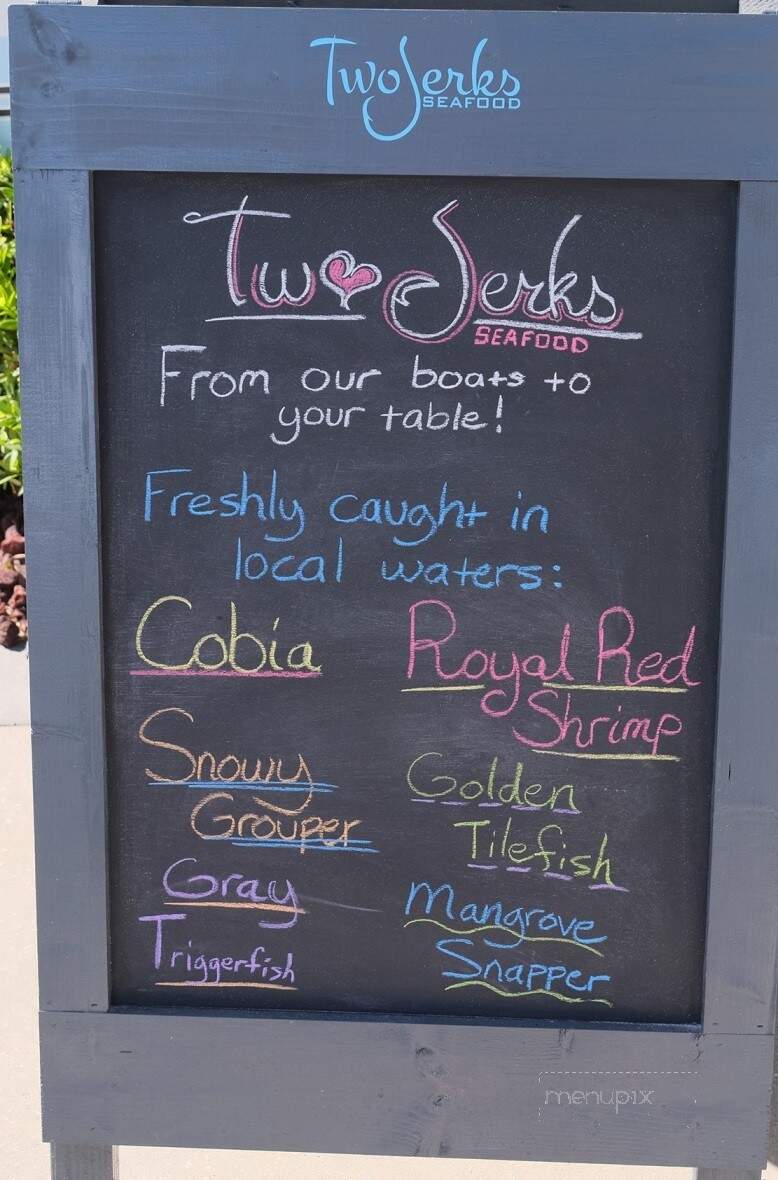 Two Jerks
SEAFOOD
Two Jerks
SEAFOOD
From our boats to
your table!
Freshly caught in
local waters:
Cobia
Royal Red
Shrimp
Snowy
Grouper
Golden
Tilefish
Gray
Triggerfish
Mangrove
Snapper
menupix